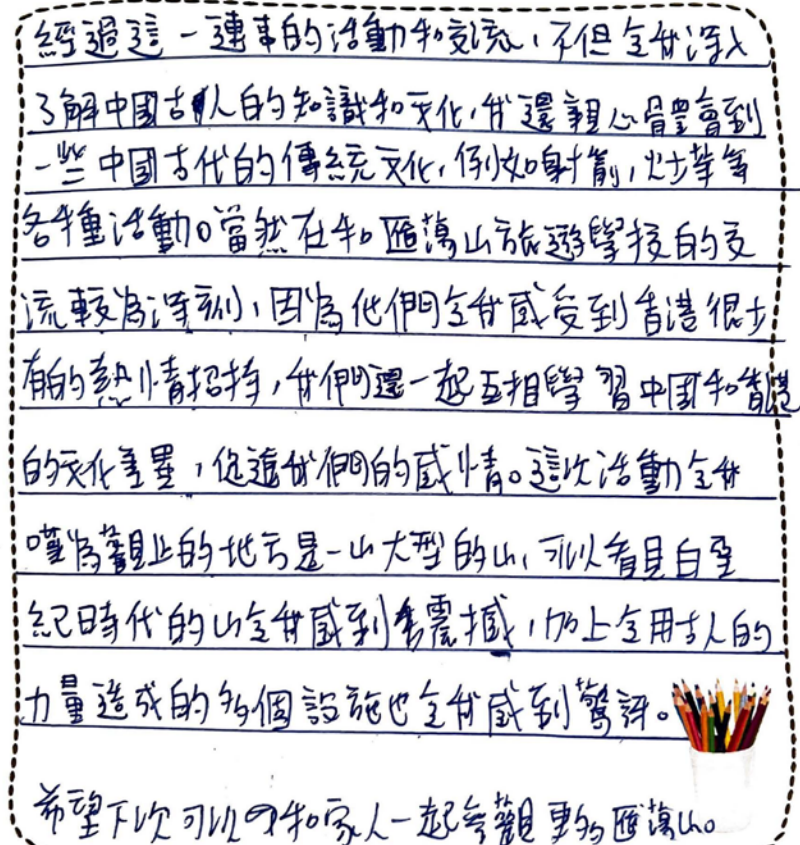 經過這一連串的活動和交流，不但令我深入
了解中國古人的知識和文化，我還親心體會到
一些中國古代的傳統文化，例如射箭，炒茶等
各種活動。當然在和匯萬山旅遊學校的交
流較為深刻，因為他們令我感受到香港很少
有的熱情招待，我們還一起互相學習中国和香港
的文化差異，促進我們的感情。這次活動令我
嘆為觀止的地方是一山大型的山，可以看見白堊
紀時代的山令我感到震撼，加上全用古人的
力量造成的多個設施也令我感到驚訝。
希望下次可以和家人一起參觀更多匯萬山。